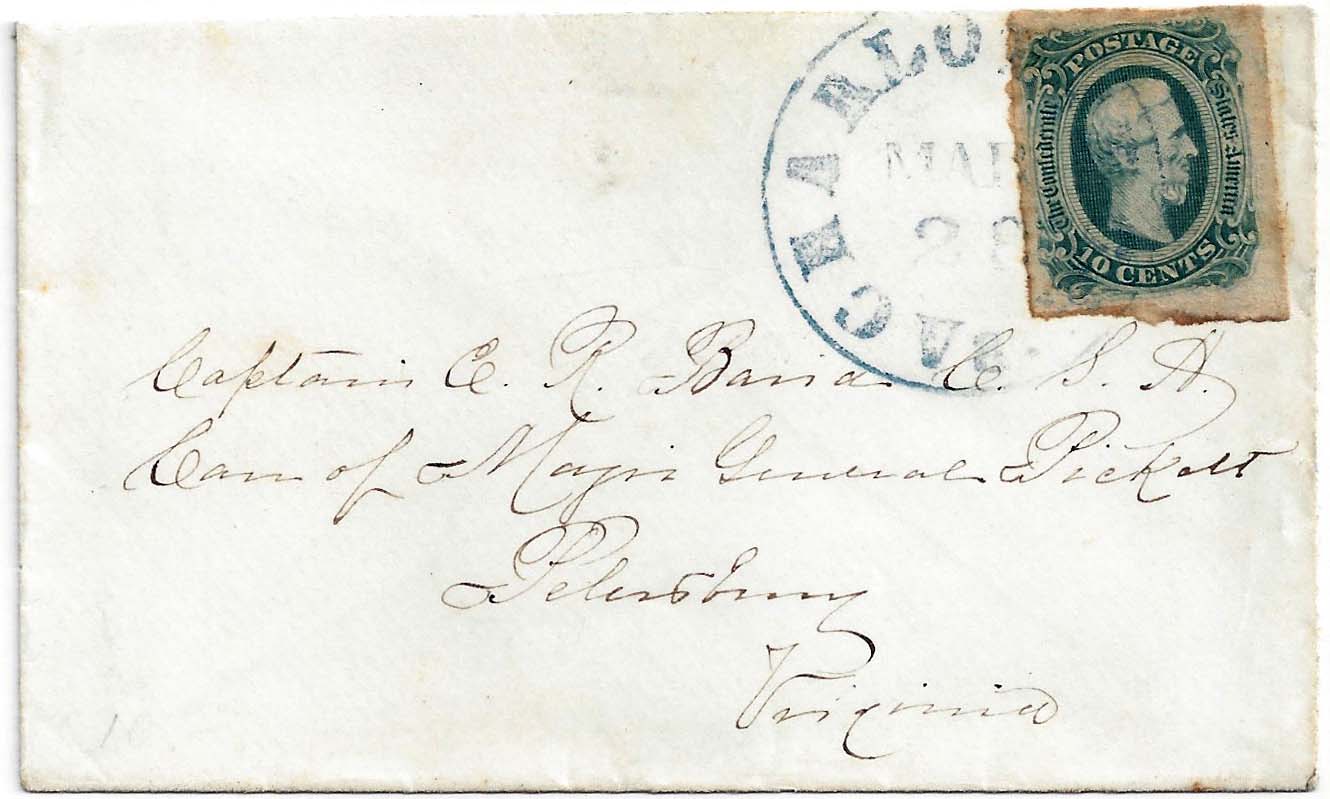 CHARLO
MAR
28
VA
POSTAGE
The Confederate States America
10 CENTS
Captain E. R. Baird C. S. A.
Care of Major General Pickett
Petersburg
Virginia